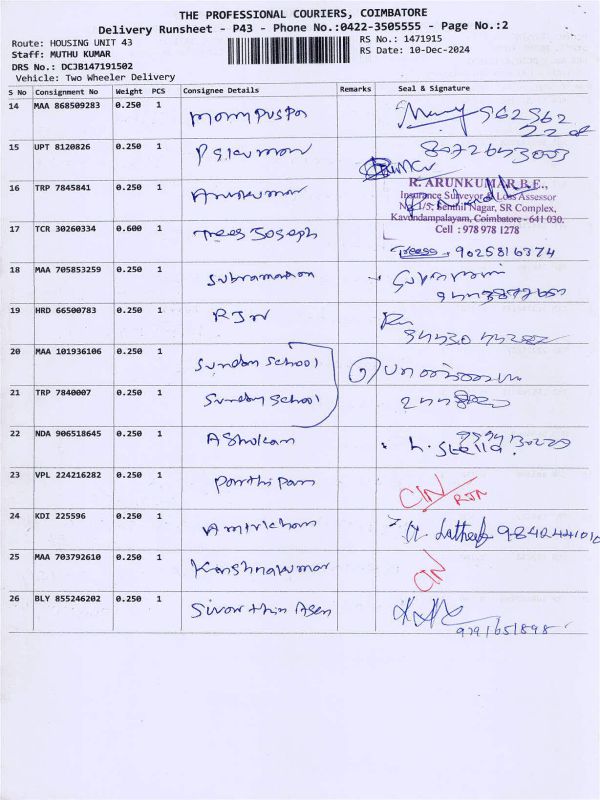 THE PROFESSIONAL COURIERS, COIMBATORE
Delivery Runsheet - P43 - Phone No.:0422-3505555 - Page No.:2
Route: HOUSING UNIT 43
RS No.: 1471915
Staff: MUTHU KUMAR
RS Date: 10-Dec-2024
DRS No.: DCJB147191502
Vehicle: Two Wheeler Delivery
S No Consignment No Weight PCS Consignee Details Remarks Seal & Signature
14 MAA 868509283 0.250 1
15 UPT 8120826 0.250 1 8072643003
16 TRP 7845841 0.250 1 Arunkumar
R. ARUNKUMAR B.E.,
Insurance Surveyor & Loss Assessor
No.1/5, Senthil Nagar, SR Complex,
Kavundampalayam, Coimbatore - 641 030.
Cell : 978 978 1278
17 TCR 30260334 0.600 1 Trees Joseph 9025816374
18 MAA 705853259 0.250 1 Subramanian
19 HRD 66500783 0.250 1 RJN
20 MAA 101936106 0.250 1 Sundan School
21 TRP 7840007 0.250 1 Sundan School
22 NDA 906518645 0.250 1 Ashokan L. Stella
23 VPL 224216282 0.250 1 Parthipan CIN/RTN
24 KDI 225596 0.250 1
25 MAA 703792610 0.250 1 Krishnakumar CIN
26 BLY 855246202 0.250 1 9791651898